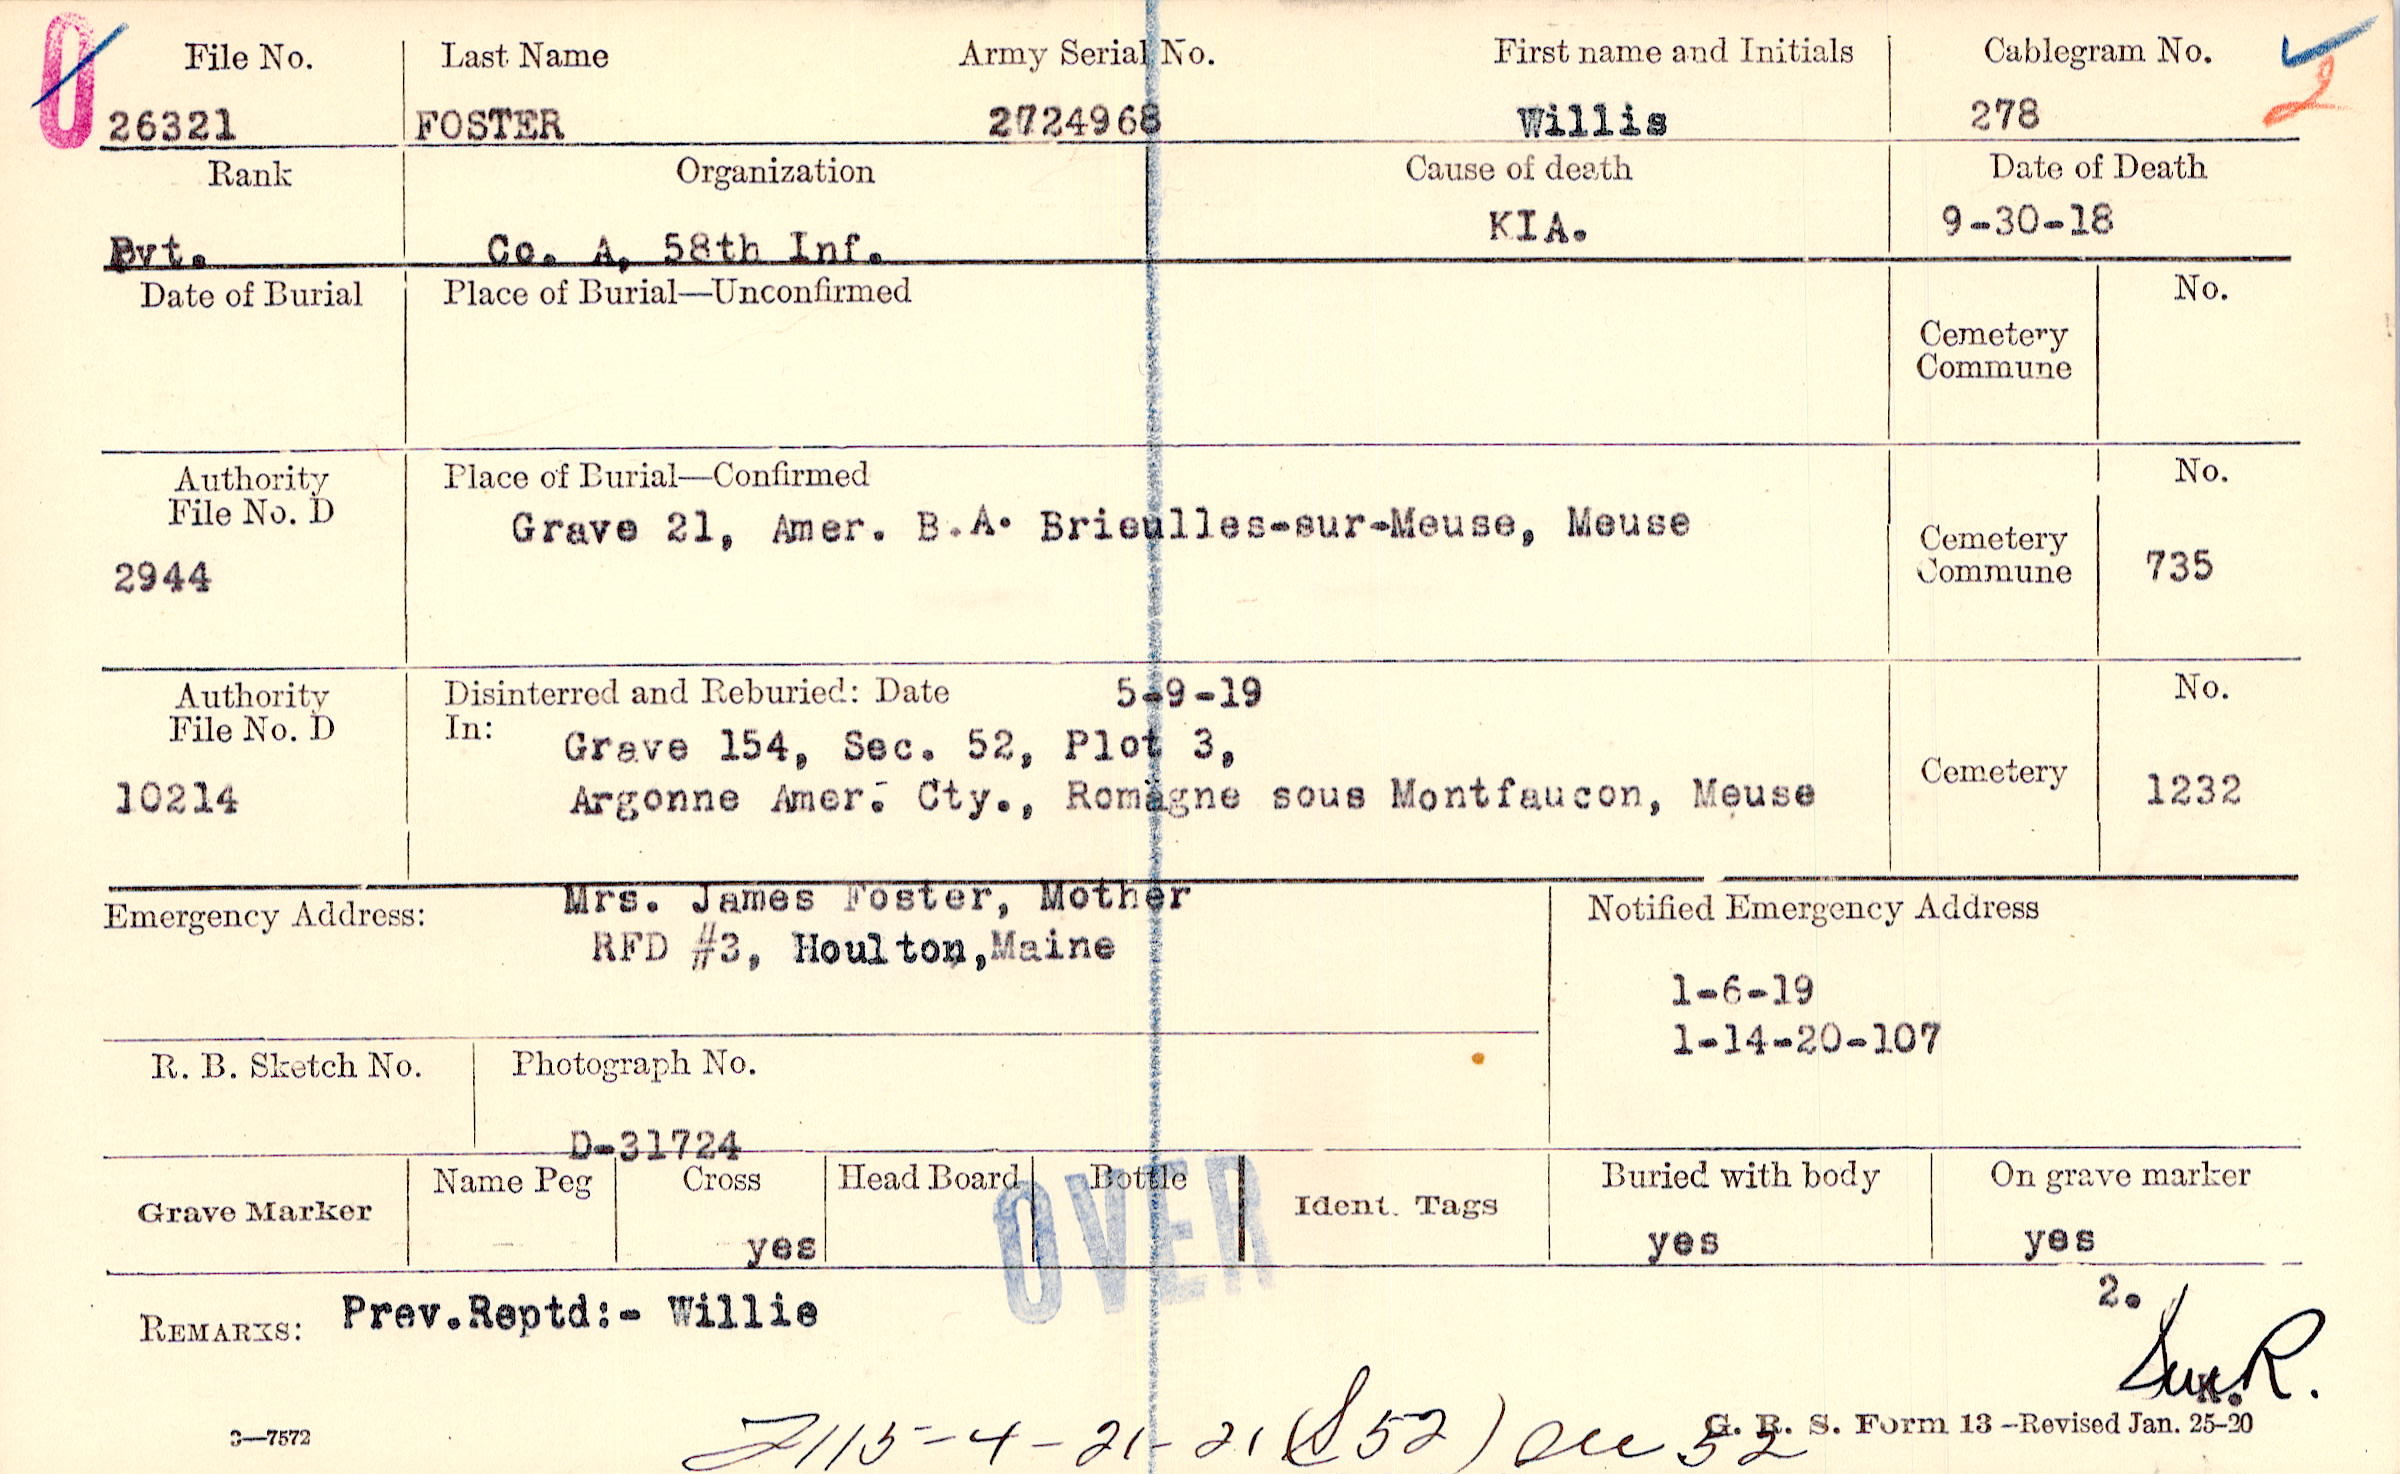 0
File No. Last Name Army Serial No. First name and Initials Cablegram No. 2
26321 FOSTER 2724968 Willis 278
Rank Organization Cause of death Date of Death
Pvt. Co. A, 58th Inf. KIA. 9-30-18
Date of Burial Place of Burial—Unconfirmed No.
Cemetery
Commune
Authority Place of Burial—Confirmed No.
File No. D
Grave 21, Amer. B.A. Brieulles-sur-Meuse, Meuse
Cemetery
Commune
2944 735
Authority Disinterred and Reburied: Date 5-9-19 No.
File No. D In:
Grave 154, Sec. 52, Plot 3,
Cemetery
10214 Argonne Amer. Cty., Romagne sous Montfaucon, Meuse 1232
Emergency Address: Mrs. James Foster, Mother Notified Emergency Address
RFD #3, Houlton,Maine
1-6-19
1-14-20-107
R. B. Sketch No. Photograph No.
D-31724
Grave Marker Name Peg Cross Head Board Bottle Ident. Tags Buried with body On grave marker
yes yes yes
OVER
2.
REMARKS: Prev.Reptd:- Willie
R.
3—7572 G. R. S. Form 13—Revised Jan. 25-20
4-21-21 (S 52) 52